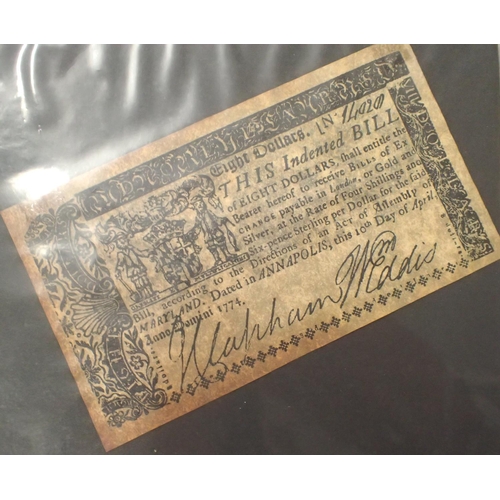 Eight Dollars. N: 14020
THIS Indented BILL
of EIGHT DOLLARS, shall entitle the
Bearer hereof to receive BILLS of EX-
CHANGE payable in London, or Gold and
Silver, at the Rate of Four Shillings and
Six-pence Sterling per Dollar for the said
Bill, according to the Directions of an Act of Assembly of
MARYLAND. Dated in ANNAPOLIS, this 10th Day of April,
Anno Domini 1774.
Wm Eddis